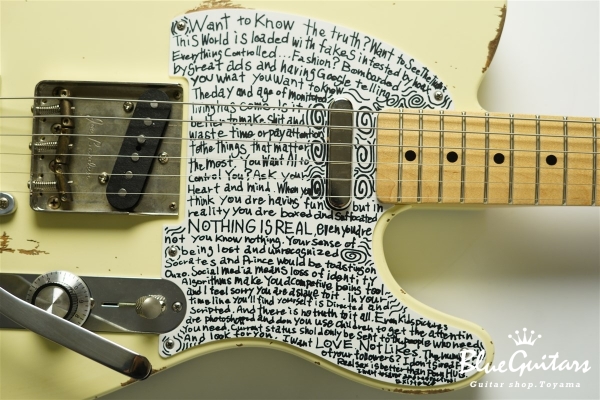 Want to Know the truth? Want to See The light?
This World is loaded with fakes infested by hoax
Everything Controlled... Fashion? Bombarded
by Great ads and having Google telling
you what you want to know
The day and age of monitored
living has come. It is
better to make shit and
waste time or pay attention
to the things that matter
the most. You Want AI to
Control You? Ask your
Heart and mind. When you
think you are having fun but in
reality you are boxed and suffocated
NOTHING IS REAL, Even you're
not. You Know nothing. Your sense of
being lost and unrecognized
Socrates and Prince would be toasting on
Ouzo. Social media means loss of identity
Algorithms make you a Competive being too!
and I feel sorry you are a slave to it. In my
time line You'll find yourself is Directed and
Scripted. And there is no truth to it all. Even Kids pictures
are photoshopped and damn you use children to get the attention
You need. Current status should only be set to the people who needs
And look for you. I want LOVE Not Likes. The
of your followers? I don't
Real sex is better than Porn Hub.
BlueGuitars
Guitar shop.Toyama